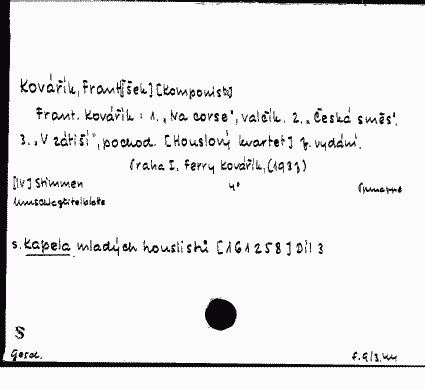 Kovářík, Frant[išek] [Komponist]
Frant. Kovářík: 1. „Na corse", valčík. 2. „Česká směs".
3. „V zátiší", pochod. [Houslový kvartet] 7. vydání.
Praha I, Ferry Kovářík, (1937)
[IV] Stimmen 4°
Umschlagtitelblatt
s. Kapela mladých houslistů [161258] Díl 3
S
Gesch.